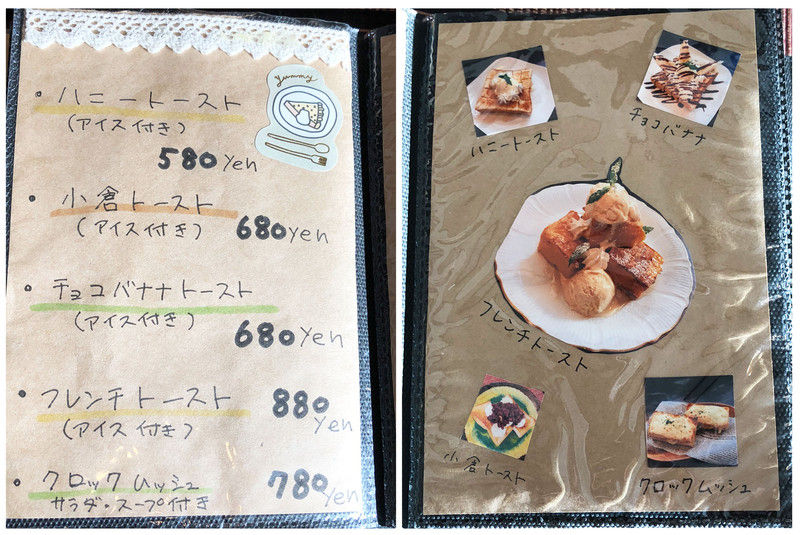 yummy
・ハニートースト
(アイス付き)
580 yen
・小倉トースト
(アイス付き) 680 yen
・チョコバナナトースト
(アイス付き) 680 yen
・フレンチトースト 880 yen
(アイス付き)
・クロックムッシュ 780 yen
サラダ・スープ付き
ハニートースト
チョコバナナ
フレンチトースト
小倉トースト
クロックムッシュ